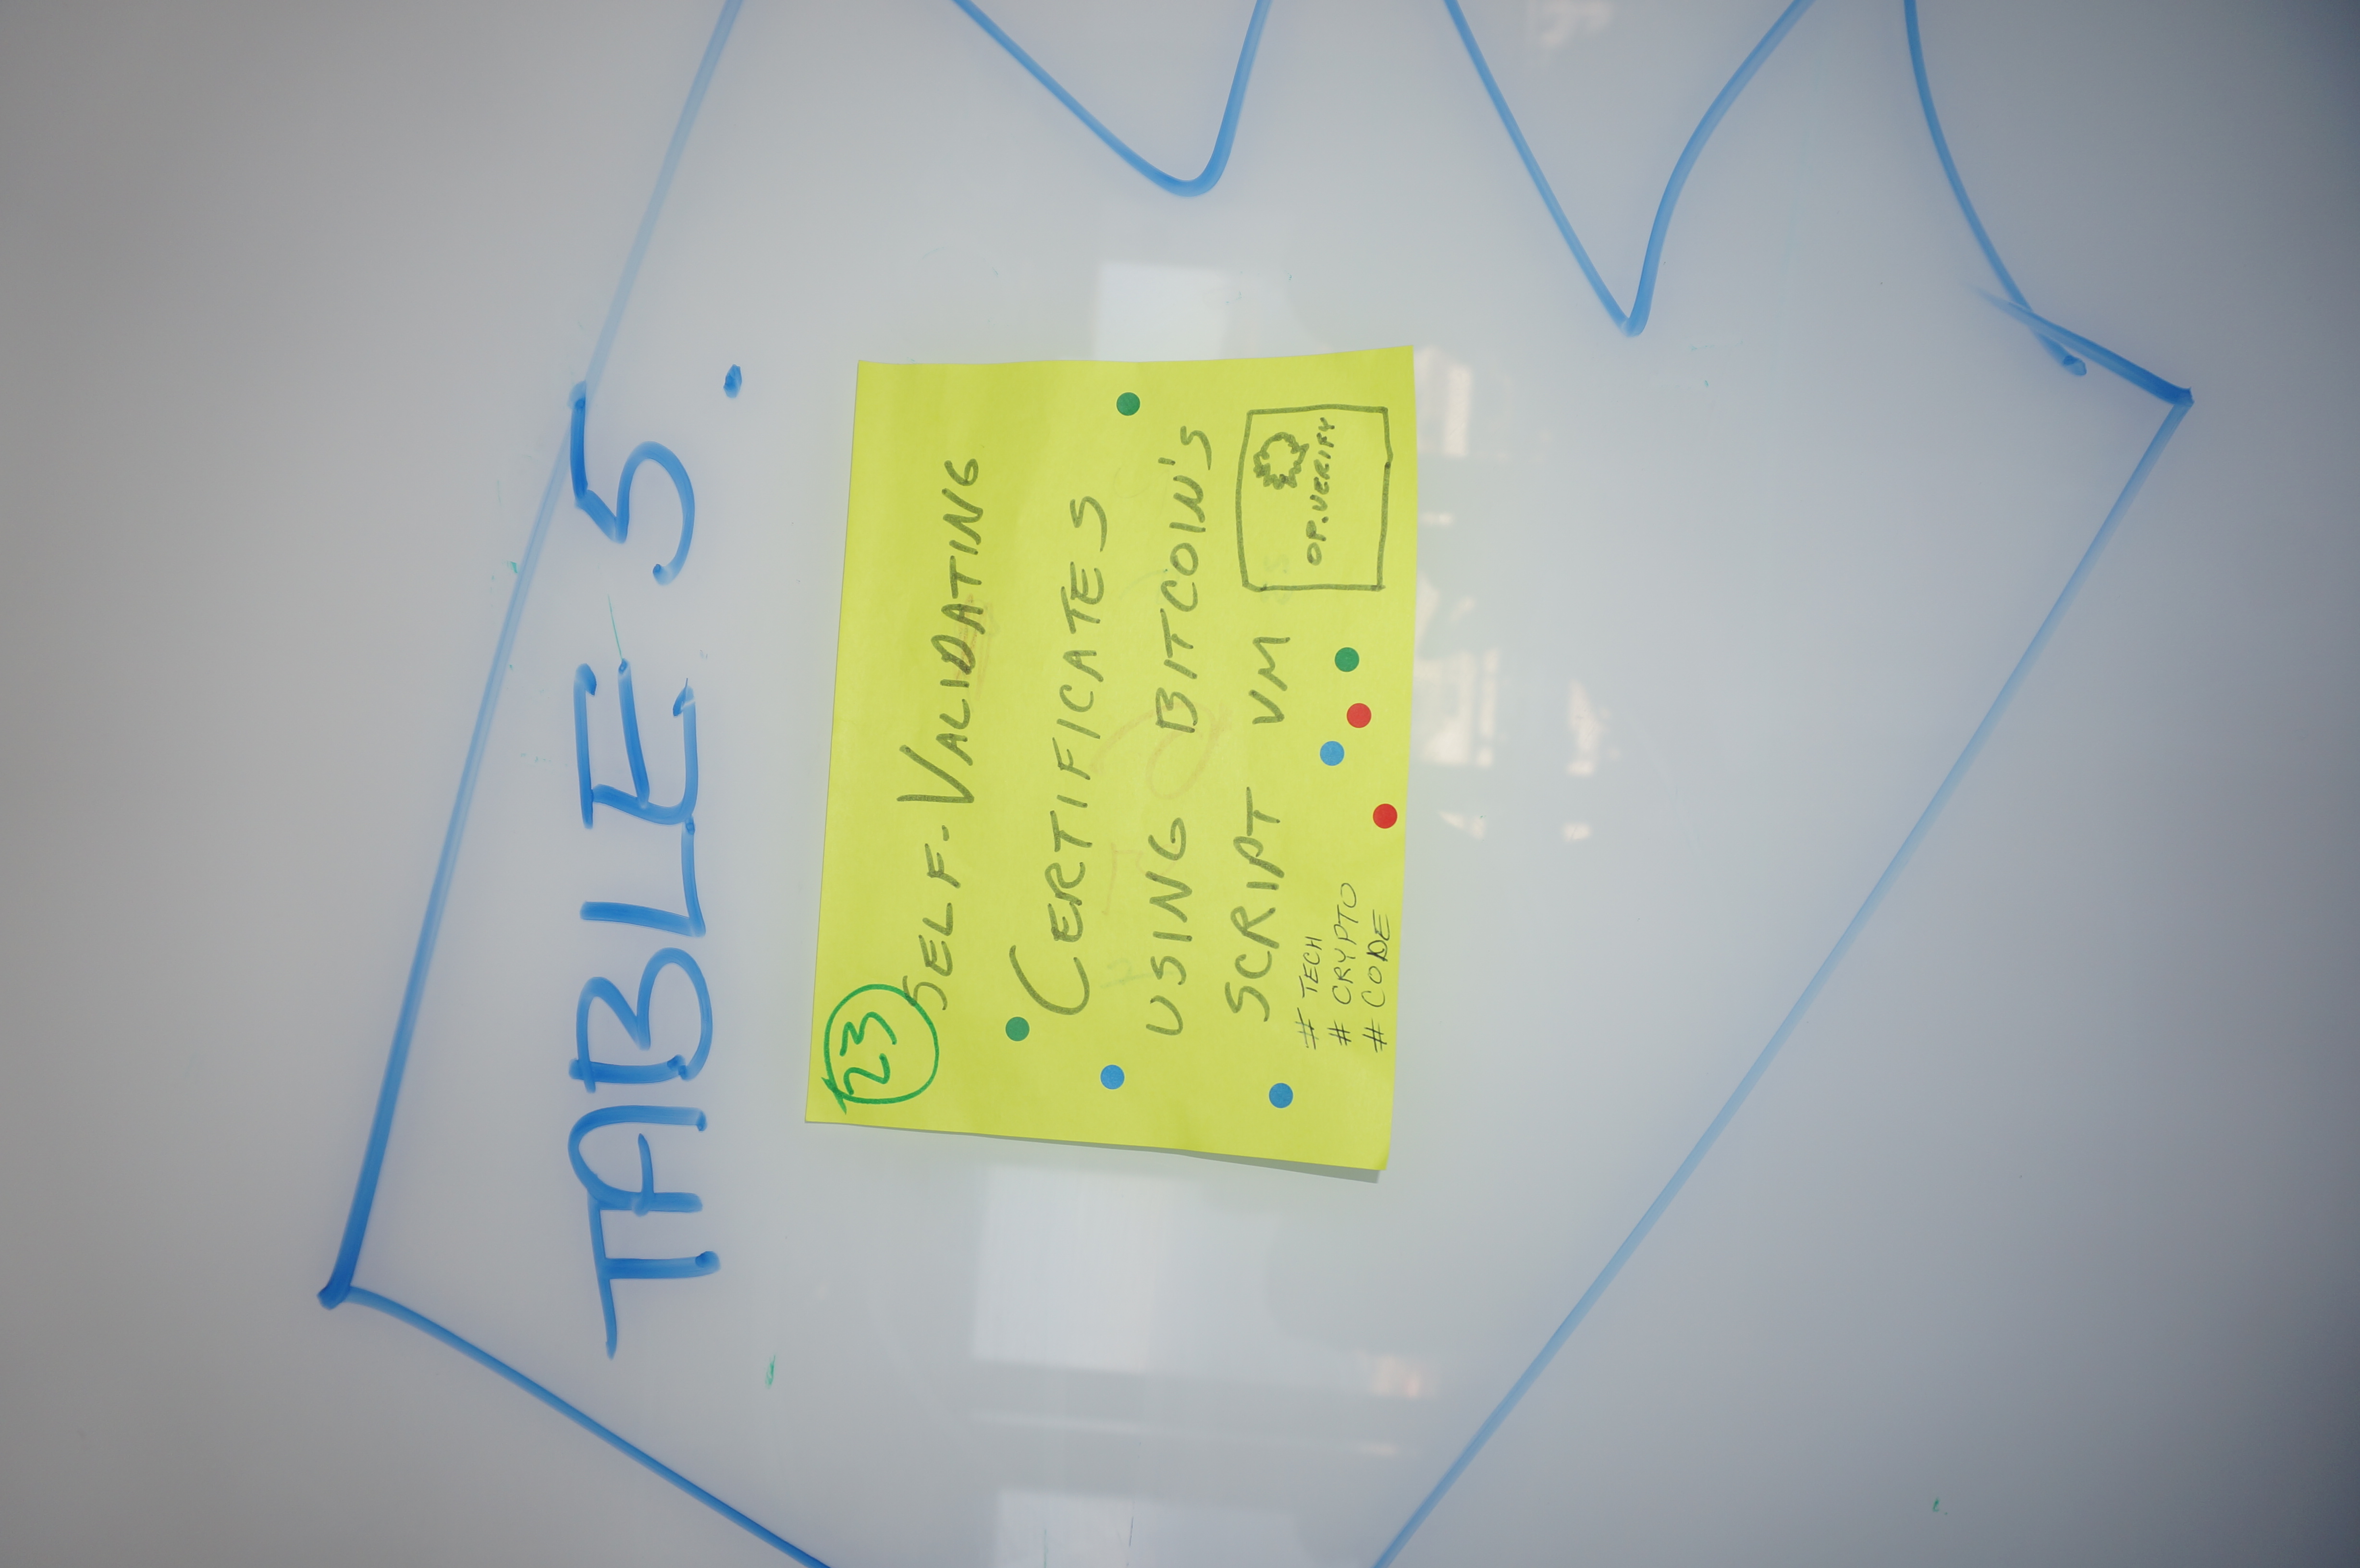 TABLE 5.
23
SELF-VALIDATING
CERTIFICATES
USING BITCOIN'S
SCRIPT VM
# TECH
# CRYPTO
# CODE
OP.VERIFY